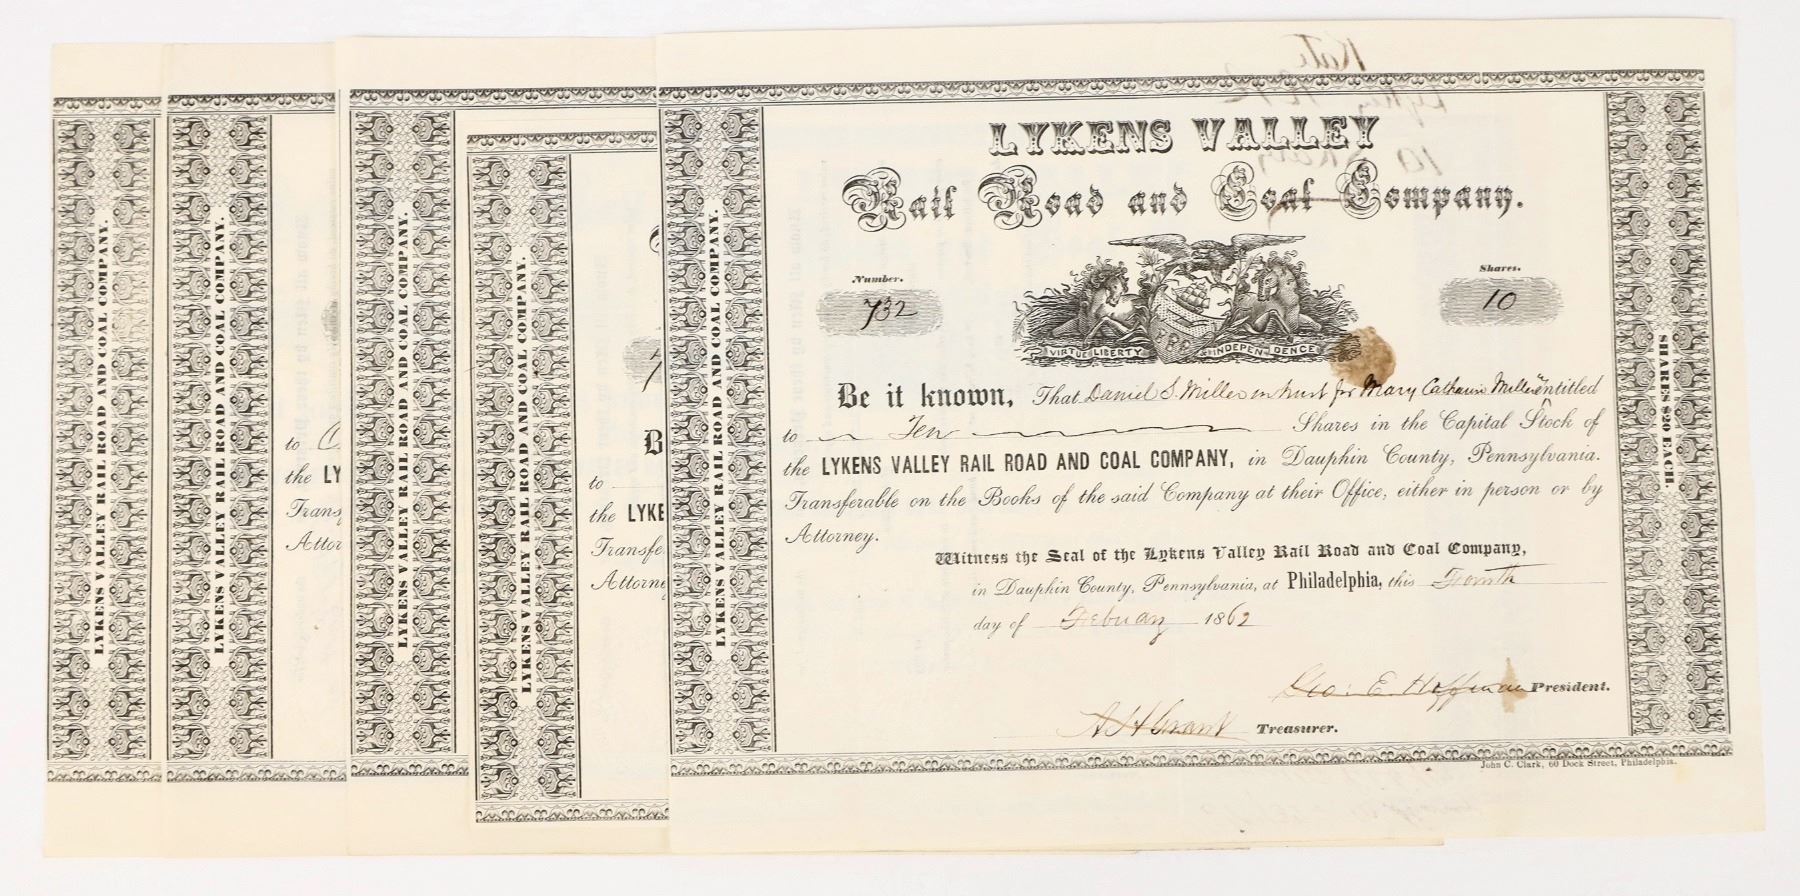 LYKENS VALLEY RAIL ROAD AND COAL COMPANY.
LYKENS VALLEY RAIL ROAD AND COAL COMPANY.
to
the LY
Transf
Attor
LYKENS VALLEY RAIL ROAD AND COAL COMPANY.
LYKENS VALLEY RAIL ROAD AND COAL COMPANY.
B
to
the LYKE
Transfe
Attorne
LYKENS VALLEY RAIL ROAD AND COAL COMPANY.
LYKENS VALLEY
Rail Road and Coal Company.
Number.
732
Shares.
10
VIRTUE LIBERTY & INDEPENDENCE
Be it known, That Daniel S. Miller in trust for Mary Catharine Miller is entitled
to Ten Shares in the Capital Stock of
the LYKENS VALLEY RAIL ROAD AND COAL COMPANY, in Dauphin County, Pennsylvania.
Transferable on the Books of the said Company at their Office, either in person or by
Attorney.
Witness the Seal of the Lykens Valley Rail Road and Coal Company,
in Dauphin County, Pennsylvania, at Philadelphia, this Fourth
day of February 1862
Geo: E. Hoffman President.
Grant Treasurer.
John C. Clark, 60 Dock Street, Philadelphia.
SHARES $20 EACH.